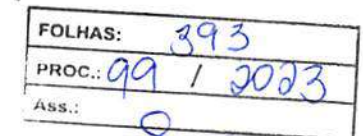 FOLHAS: 393
PROC.: 99 / 2023
Ass.: